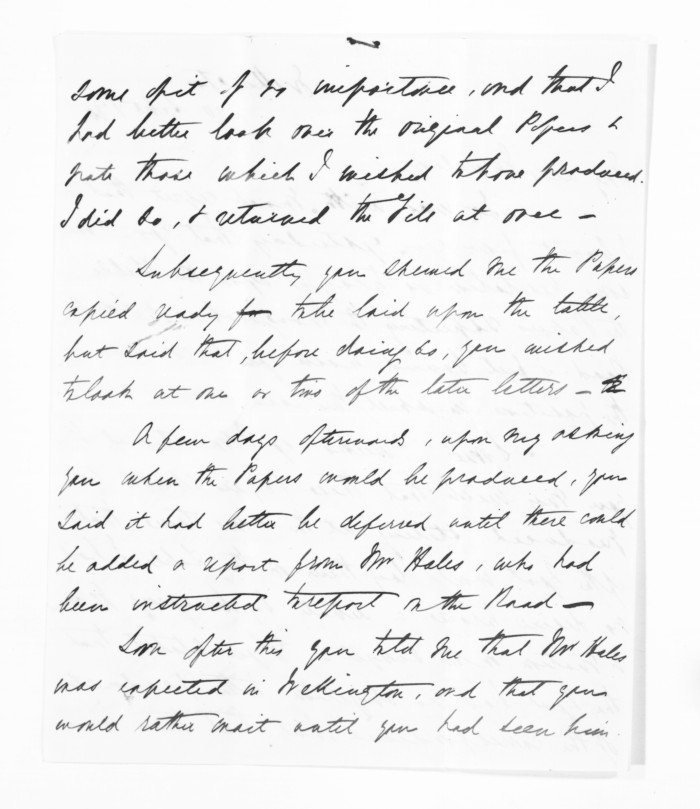 some of it of no importance, and that I
had better look over the original Papers &
note those which I wished to have produced.
I did so, & returned the File at once —
Subsequently you shewed me the Papers
copied ready for to be laid upon the table,
but said that, before doing so, you wished
to look at one or two of the later letters —
A few days afterwards, upon my asking
you when the Papers would be produced, you
said it had better be deferred until there could
be added a report from Mr Hales, who had
been instructed to report on the Road —
Soon after this you told me that Mr Hales
was expected in Wellington, and that you
would rather wait until you had seen him.